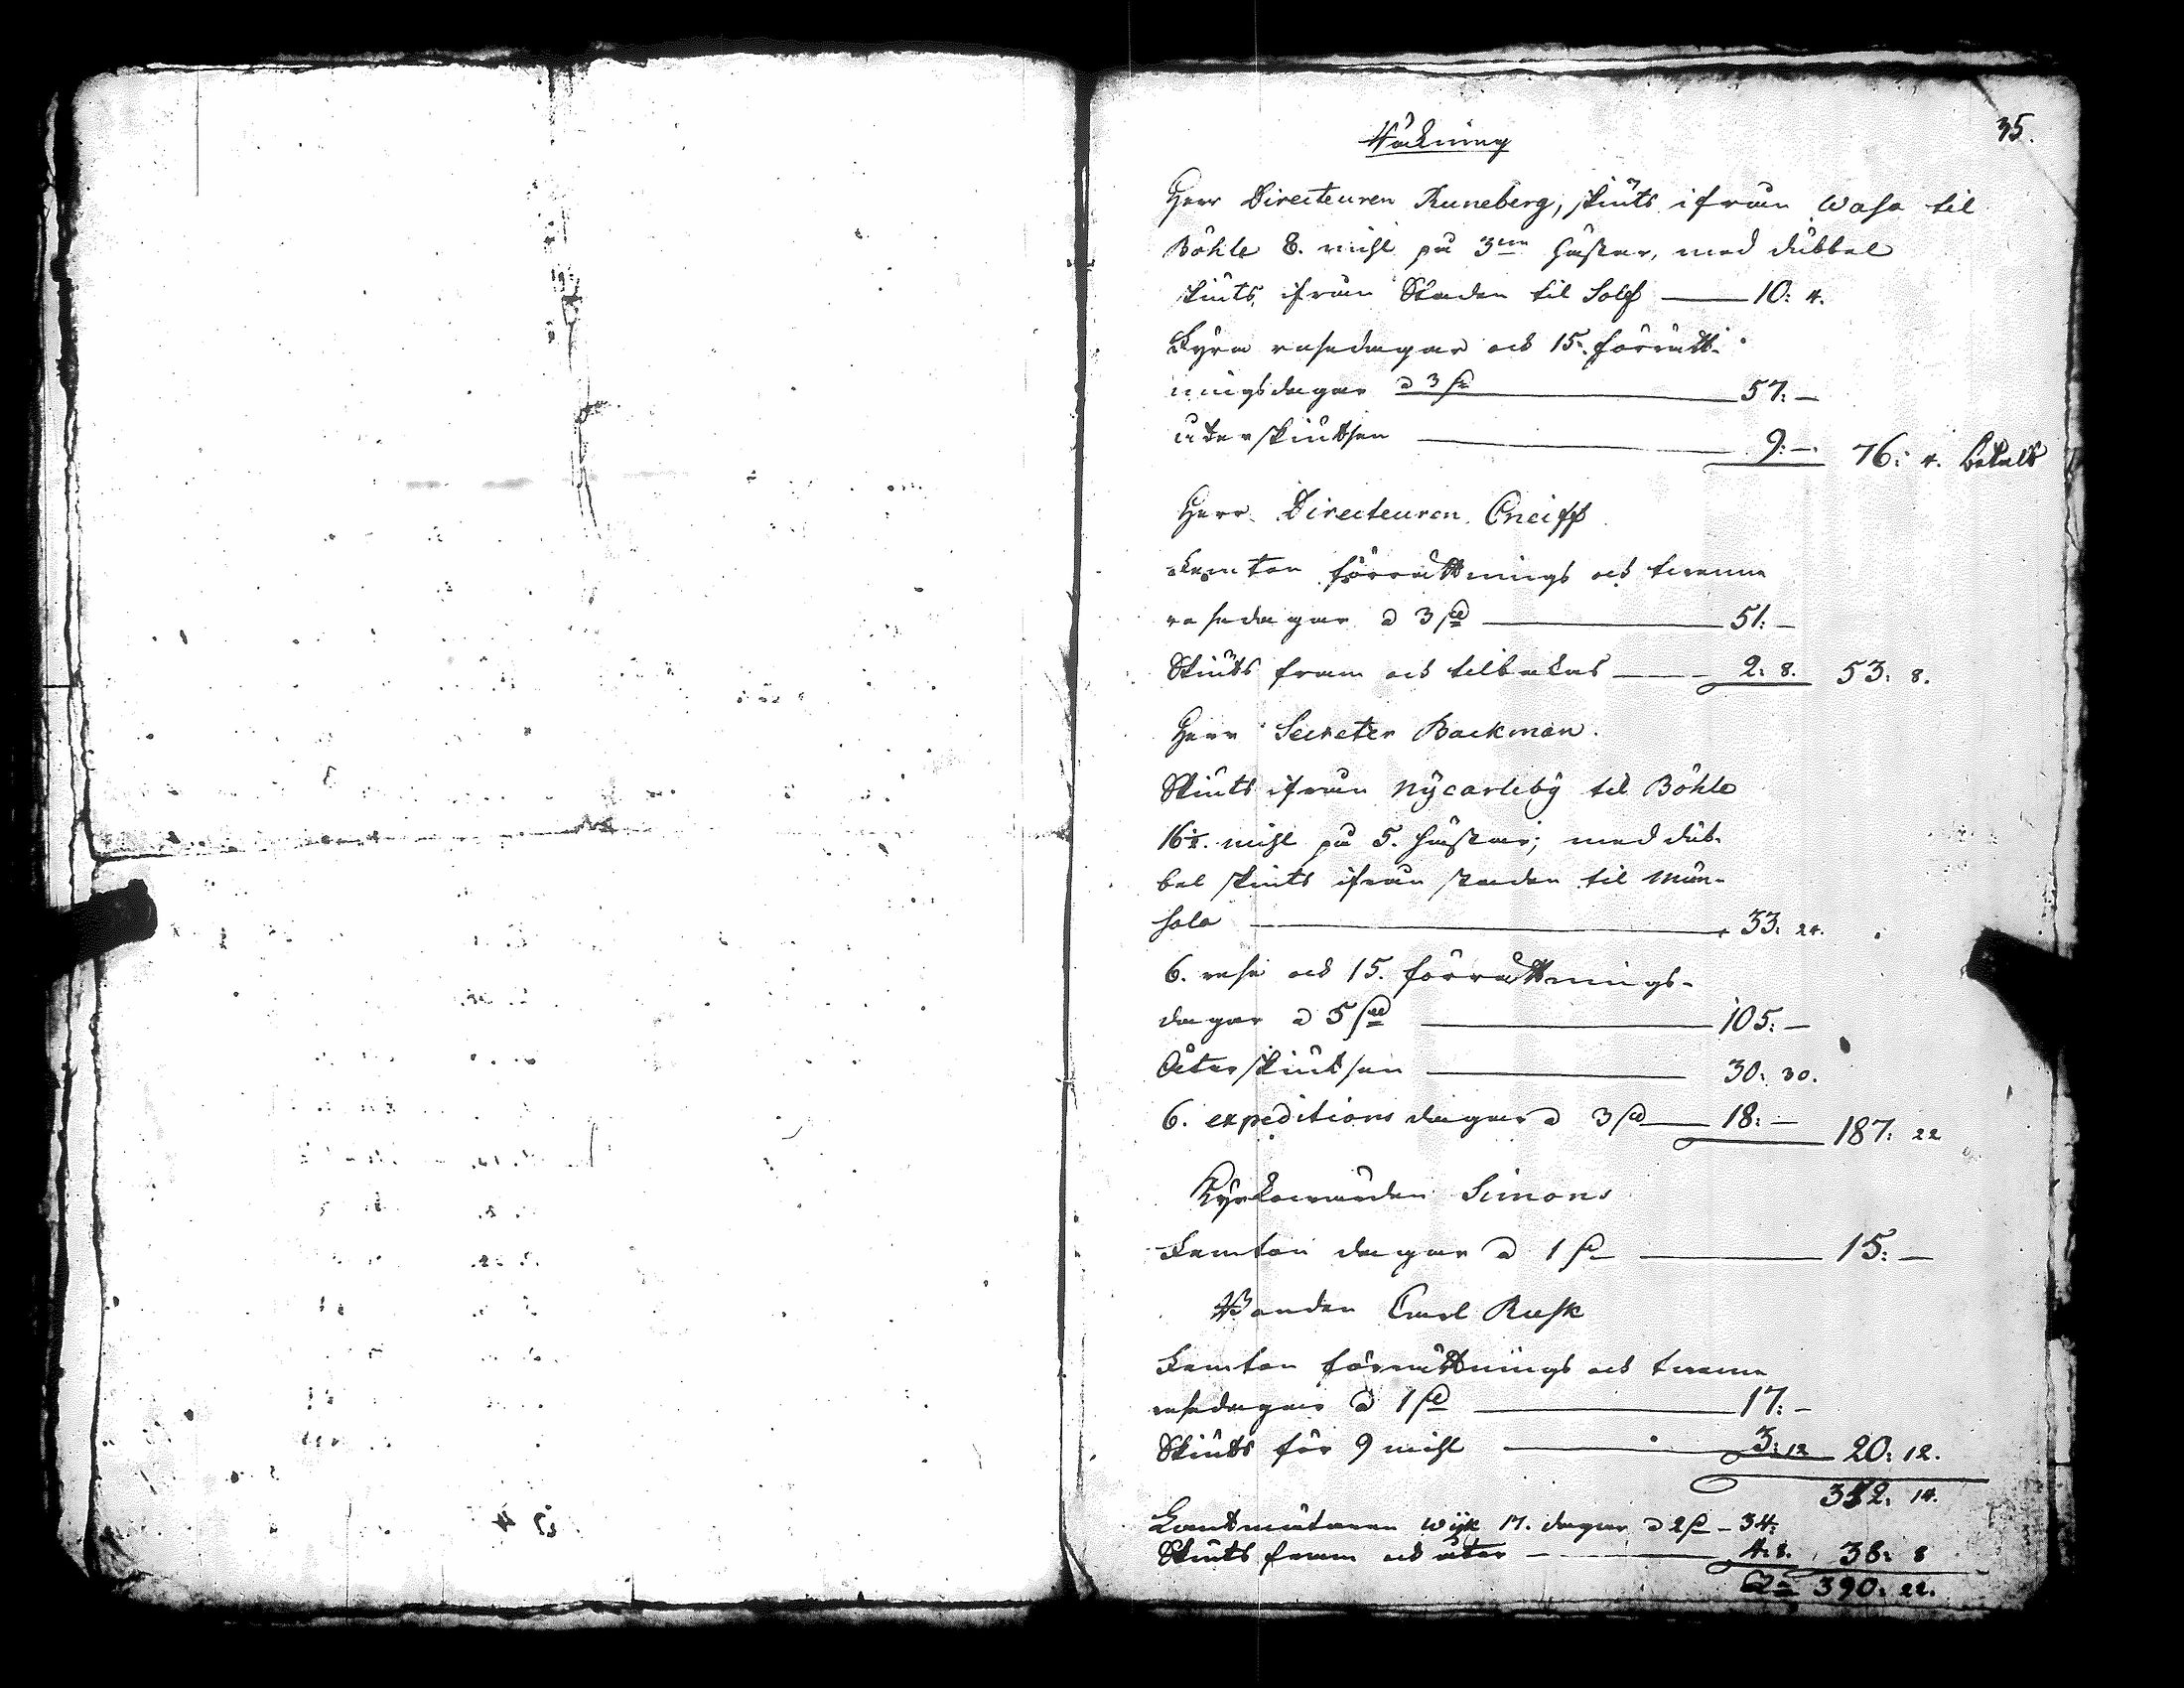 35.
Räkning
Herr Directeuren Runeberg, skiuts ifrån Wasa til
Böhle 8. mihl på 3ne hästar, med dubbel
skiuts ifrån Staden til Solf — 10: 4.
Fyra resedagar och 15. förrätt-
ningsdagar a 3 — 57: —
återskiutsen — 9: — 76: 4. betalt
Herr Directeuren Cneiff
Femton förrättnings och twenne
resedagar a 3 — 51: —
Skiuts fram och tilbakas — 2: 8. 53: 8.
Herr Secreter Backman.
Skiuts ifrån Nycarleby til Böhle
16½. mihl på 5. hästar; med dub-
bel skiuts ifrån staden til Mun-
sala — 33: 24.
6. rese och 15. förrättnings-
dagar a 5 — 105: —
Återskiutsen — 30: 30.
6. expeditions dagar a 3 — 18: — 187: 22
Kyrkowärden Simons
Femton dagar a 1 — 15: —
Bonden Carl Rusk
Femton förrättnings och twenne
resedagar a 1 — 17: —
Skiuts för 9 mihl — 3: 12 20: 12.
352: 14.
Landtmätaren Wijk 17. dagar a 2 — 34:
Skiuts fram och åter — 4: 8. 38: 8
390: 22.